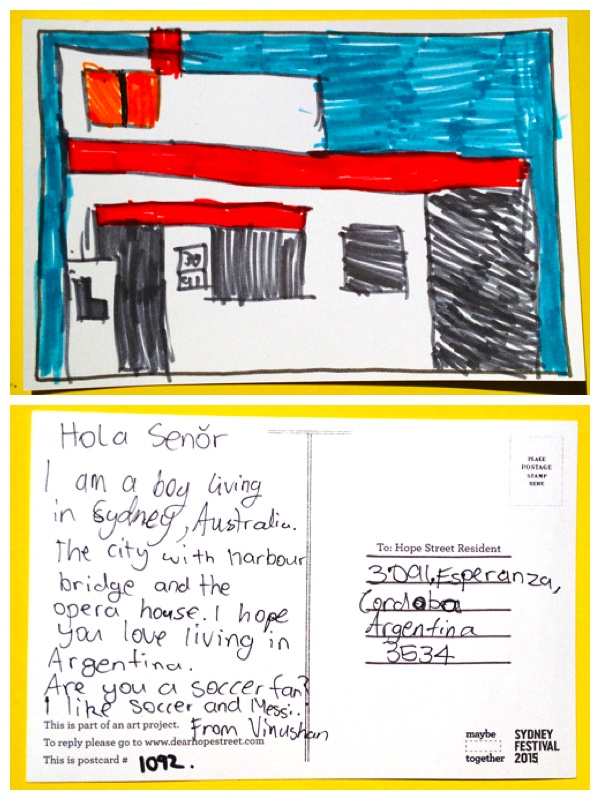 30
91
Hola Senŏr
I am a boy living
in Sydney, Australia.
The city with harbour
bridge and the
opera house. I hope
you love living in
Argentina.
Are you a soccer fan?
I like soccer and Messi..
From Vinushan
This is part of an art project.
To reply please go to www.dearhopestreet.com
This is postcard # 1092.
PLACE
POSTAGE
STAMP
HERE
To: Hope Street Resident
3091, Esperanza,
Cordoba
Argentina
3534
maybe
together
SYDNEY
FESTIVAL
2015